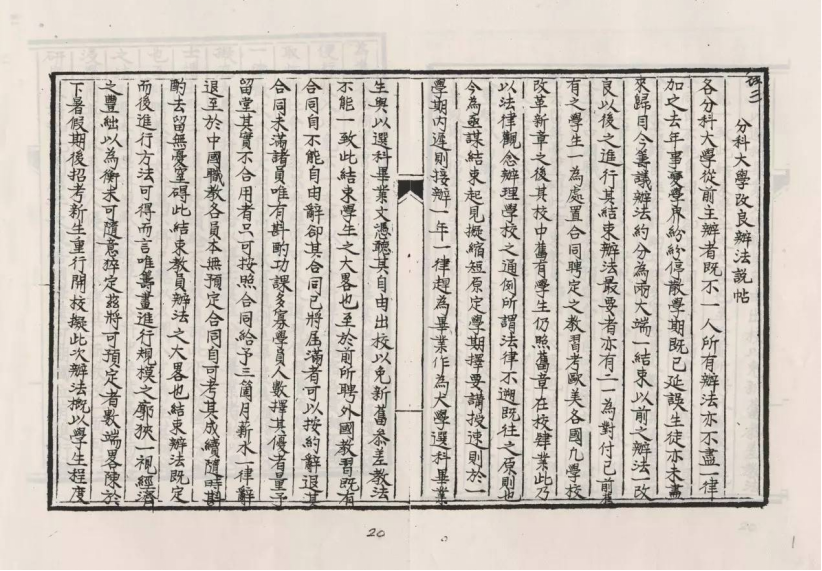 分科大學改良辦法說帖
各分科大學從前主辦者既不一人所有辦法亦不盡一律
加之去年事變學界紛紛停辍學期既已延誤生徒亦未盡
來歸目今籌議辦法約分為兩大端一結束以前之辦法一改
良以後之進行其結束辦法最要者亦有二一為對付已前舊
有之學生一為處置合同聘定之教習考歐美各國凡學校
改革新章之後其校中舊有學生仍照舊章在校肄業此乃
以法律觀念辦理學校之通例所謂法律不遡既往之原則也
今為亟謀結束起見擬縮短原定學期擇要講授速則於一
學期內遲則接辦一年一律趕為畢業作為大學選科畢業
生與以選科畢業文憑聽其自由出校以免新舊參差教法
不能一致此結束學生之大畧也至於前所聘外國教習既有
合同自不能自由辭卻其合同已將屆滿者可以按約辭退其
合同未滿諸員唯有斟酌功課多寡學員人數擇其優者量予
留堂其實不合用者只可按照合同給予三箇月薪水一律辭
退至於中國職教各員本無預定合同自可考其成績隨時斟
酌去留無憂窒碍此結束教員辦法之大畧也結束辦法既定
而後進行方法可得而言唯籌畫進行規模之廓狹一視經濟
之豐絀以為衡未可隨意猝定茲將可預定者數端畧陳於
下暑假期後招考新生重行開校擬此次辦法概以學生程度
20